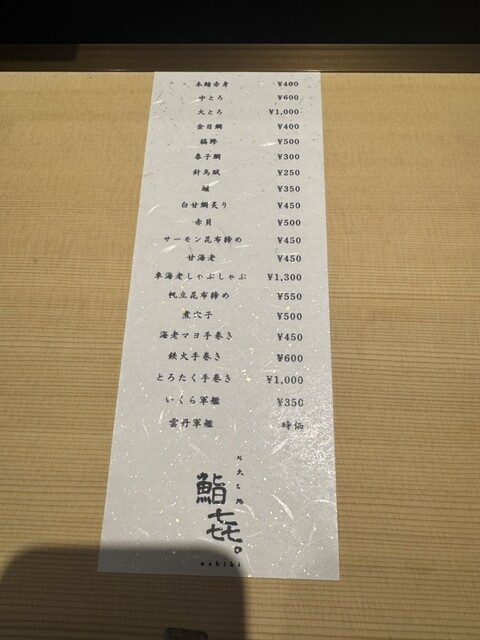 本鮪赤身 ¥400
中とろ ¥600
大とろ ¥1,000
金目鯛 ¥400
縞鯵 ¥500
春子鯛 ¥300
針烏賊 ¥250
¥350
白甘鯛炙り ¥450
赤貝 ¥500
サーモン昆布締め ¥450
甘海老 ¥450
車海老しゃぶしゃぶ ¥1,300
帆立昆布締め ¥550
煮穴子 ¥500
海老マヨ手巻き ¥450
鉄火手巻き ¥600
とろたく手巻き ¥1,000
いくら軍艦 ¥350
雲丹軍艦 時価
鮨㐂。